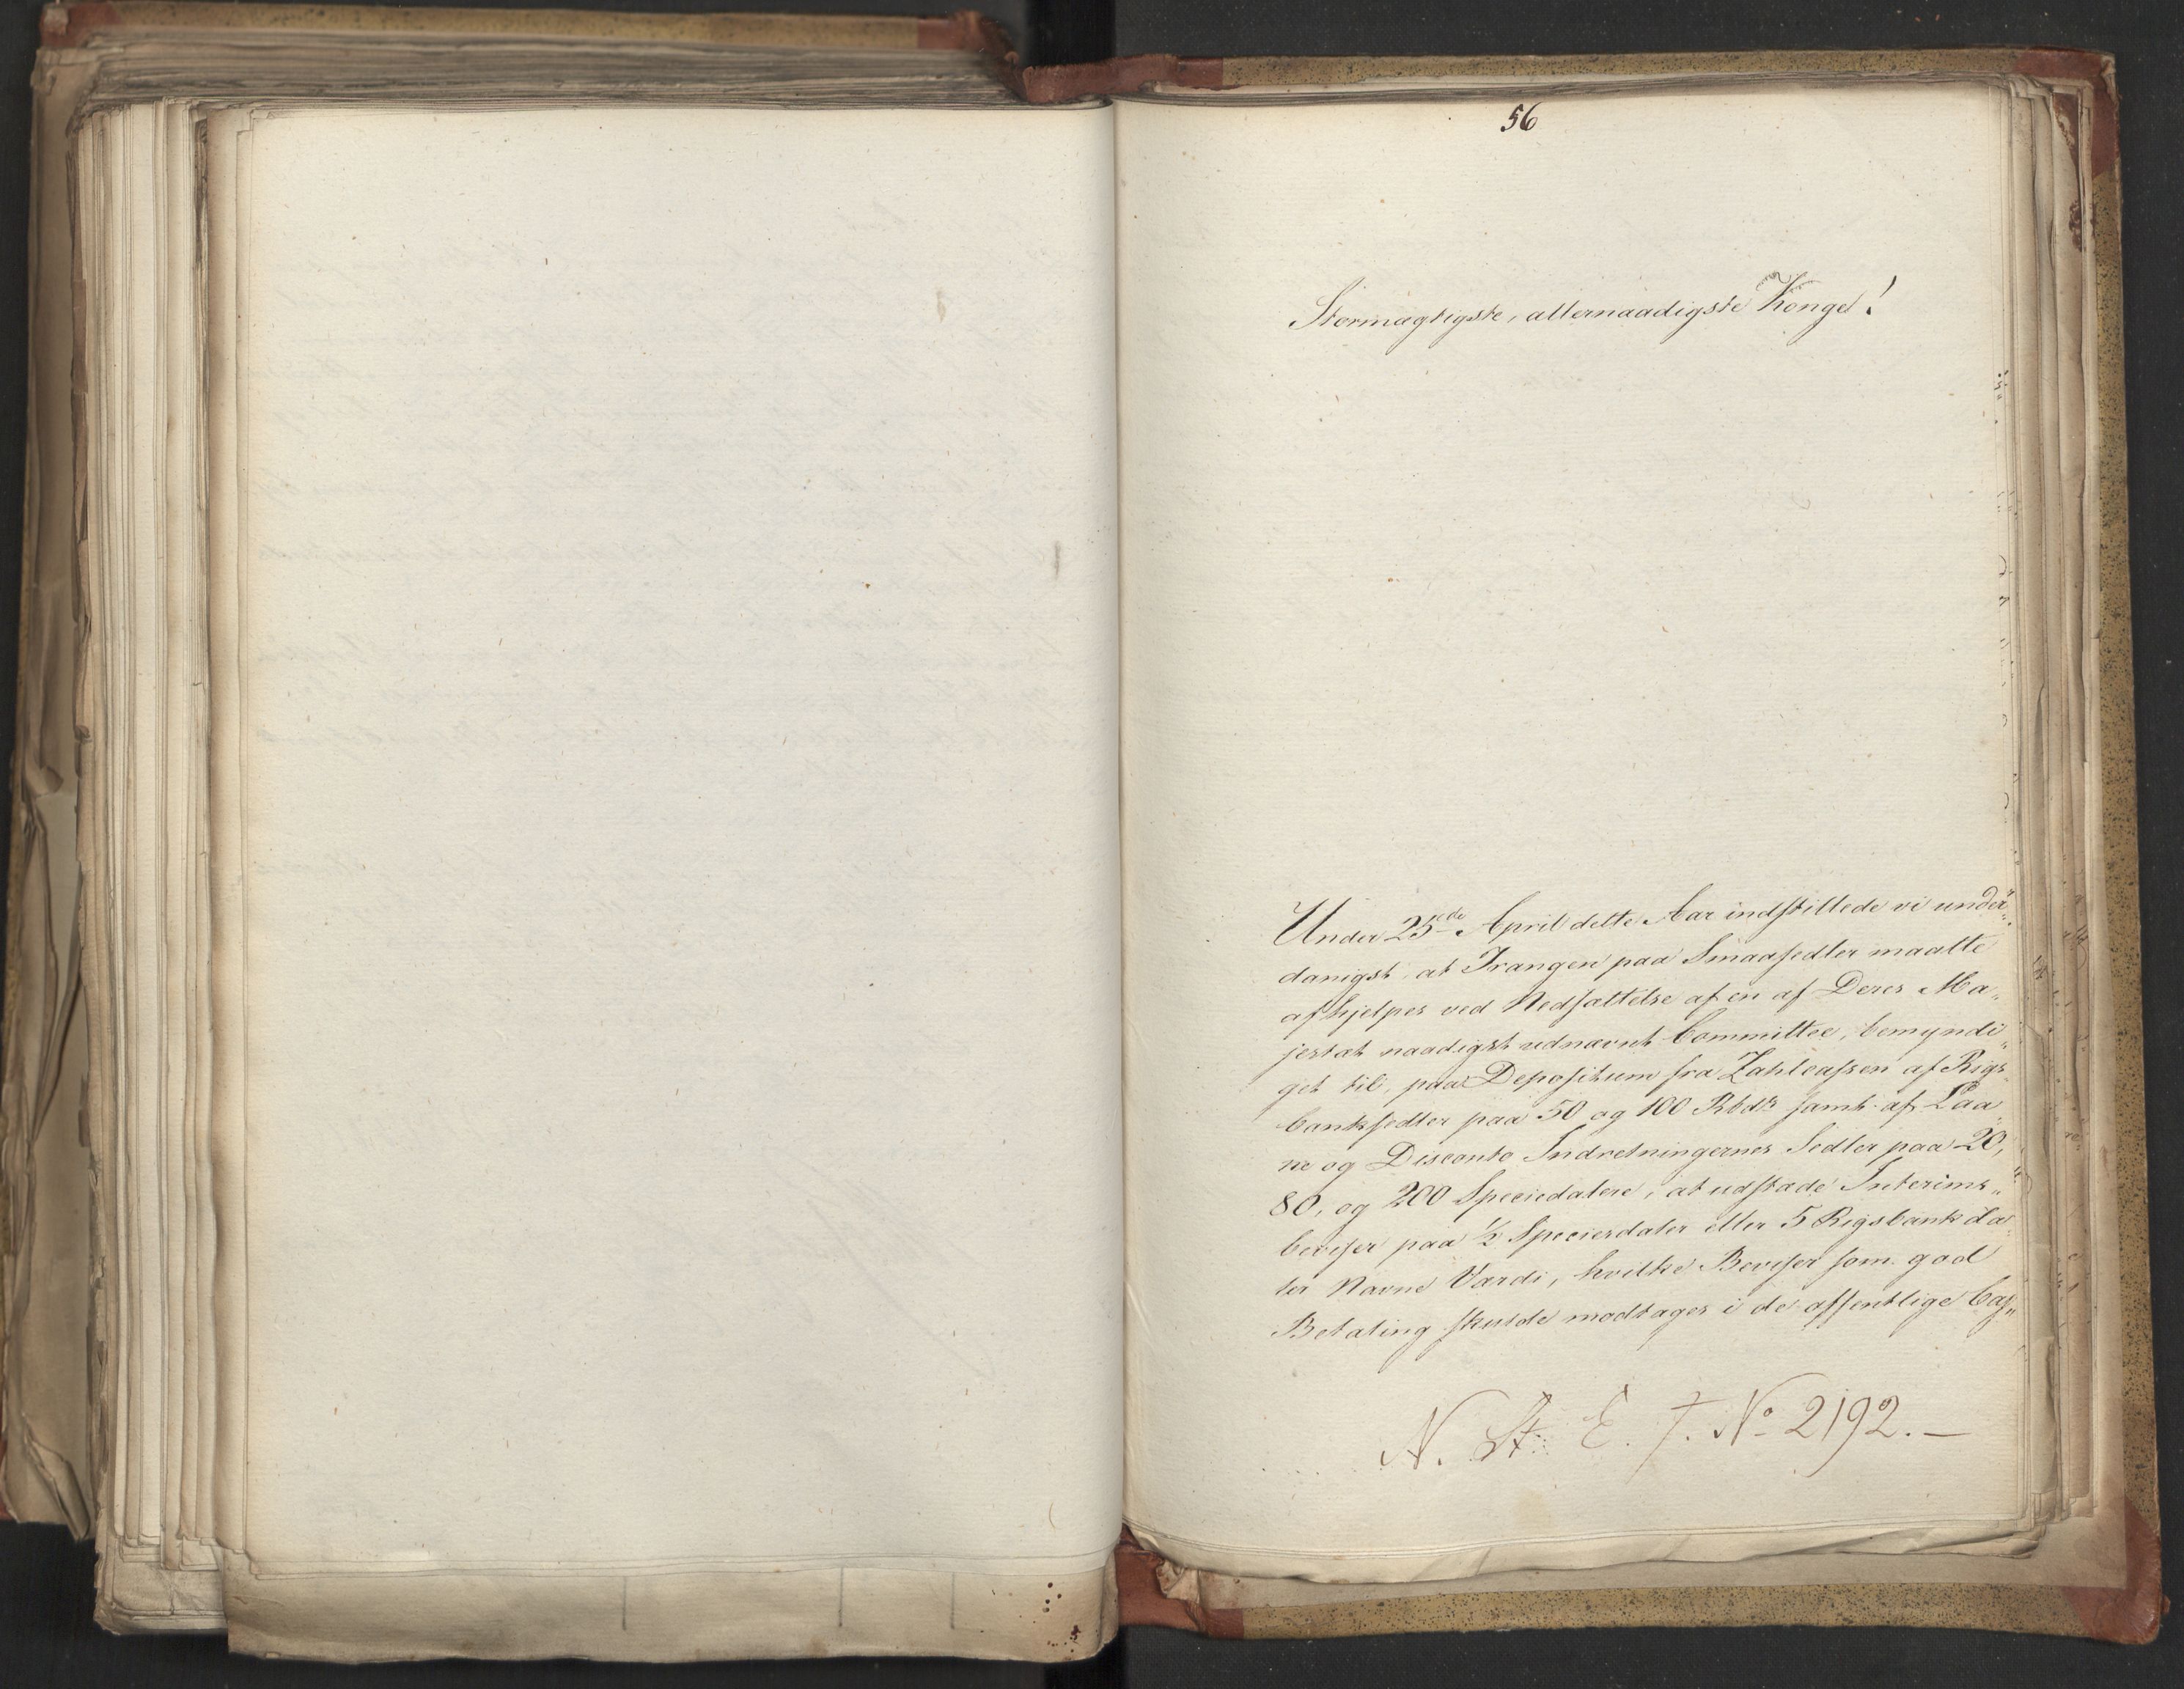 56
Stormægtigste, allernaadigste Konge!
Under 25de April dette Aar indstillede vi under„
danigst, at Trangen paa Smaasedler maatte
afhjelpes ved Nedsættelse af en af Deres Ma„
jestæt naadigst udnævnt Committee, bemyndi„
get til, paa Depositum fra Zahlcassen af Rigs„
banksedler paa 50 og 100 Rbdr samt af Laa„
ne og Disconto Indretningernes Sedler paa 20,
80, og 200 Speciedalere, at udstæde Interims„
beviser paa ½ Speciesdaler eller 5 Rigsbankda„
ler Navne Værdi, hvilke Beviser som god
Betaling skulde modtages i de offentlige Cas„
N. St. E. T. No 2192.—